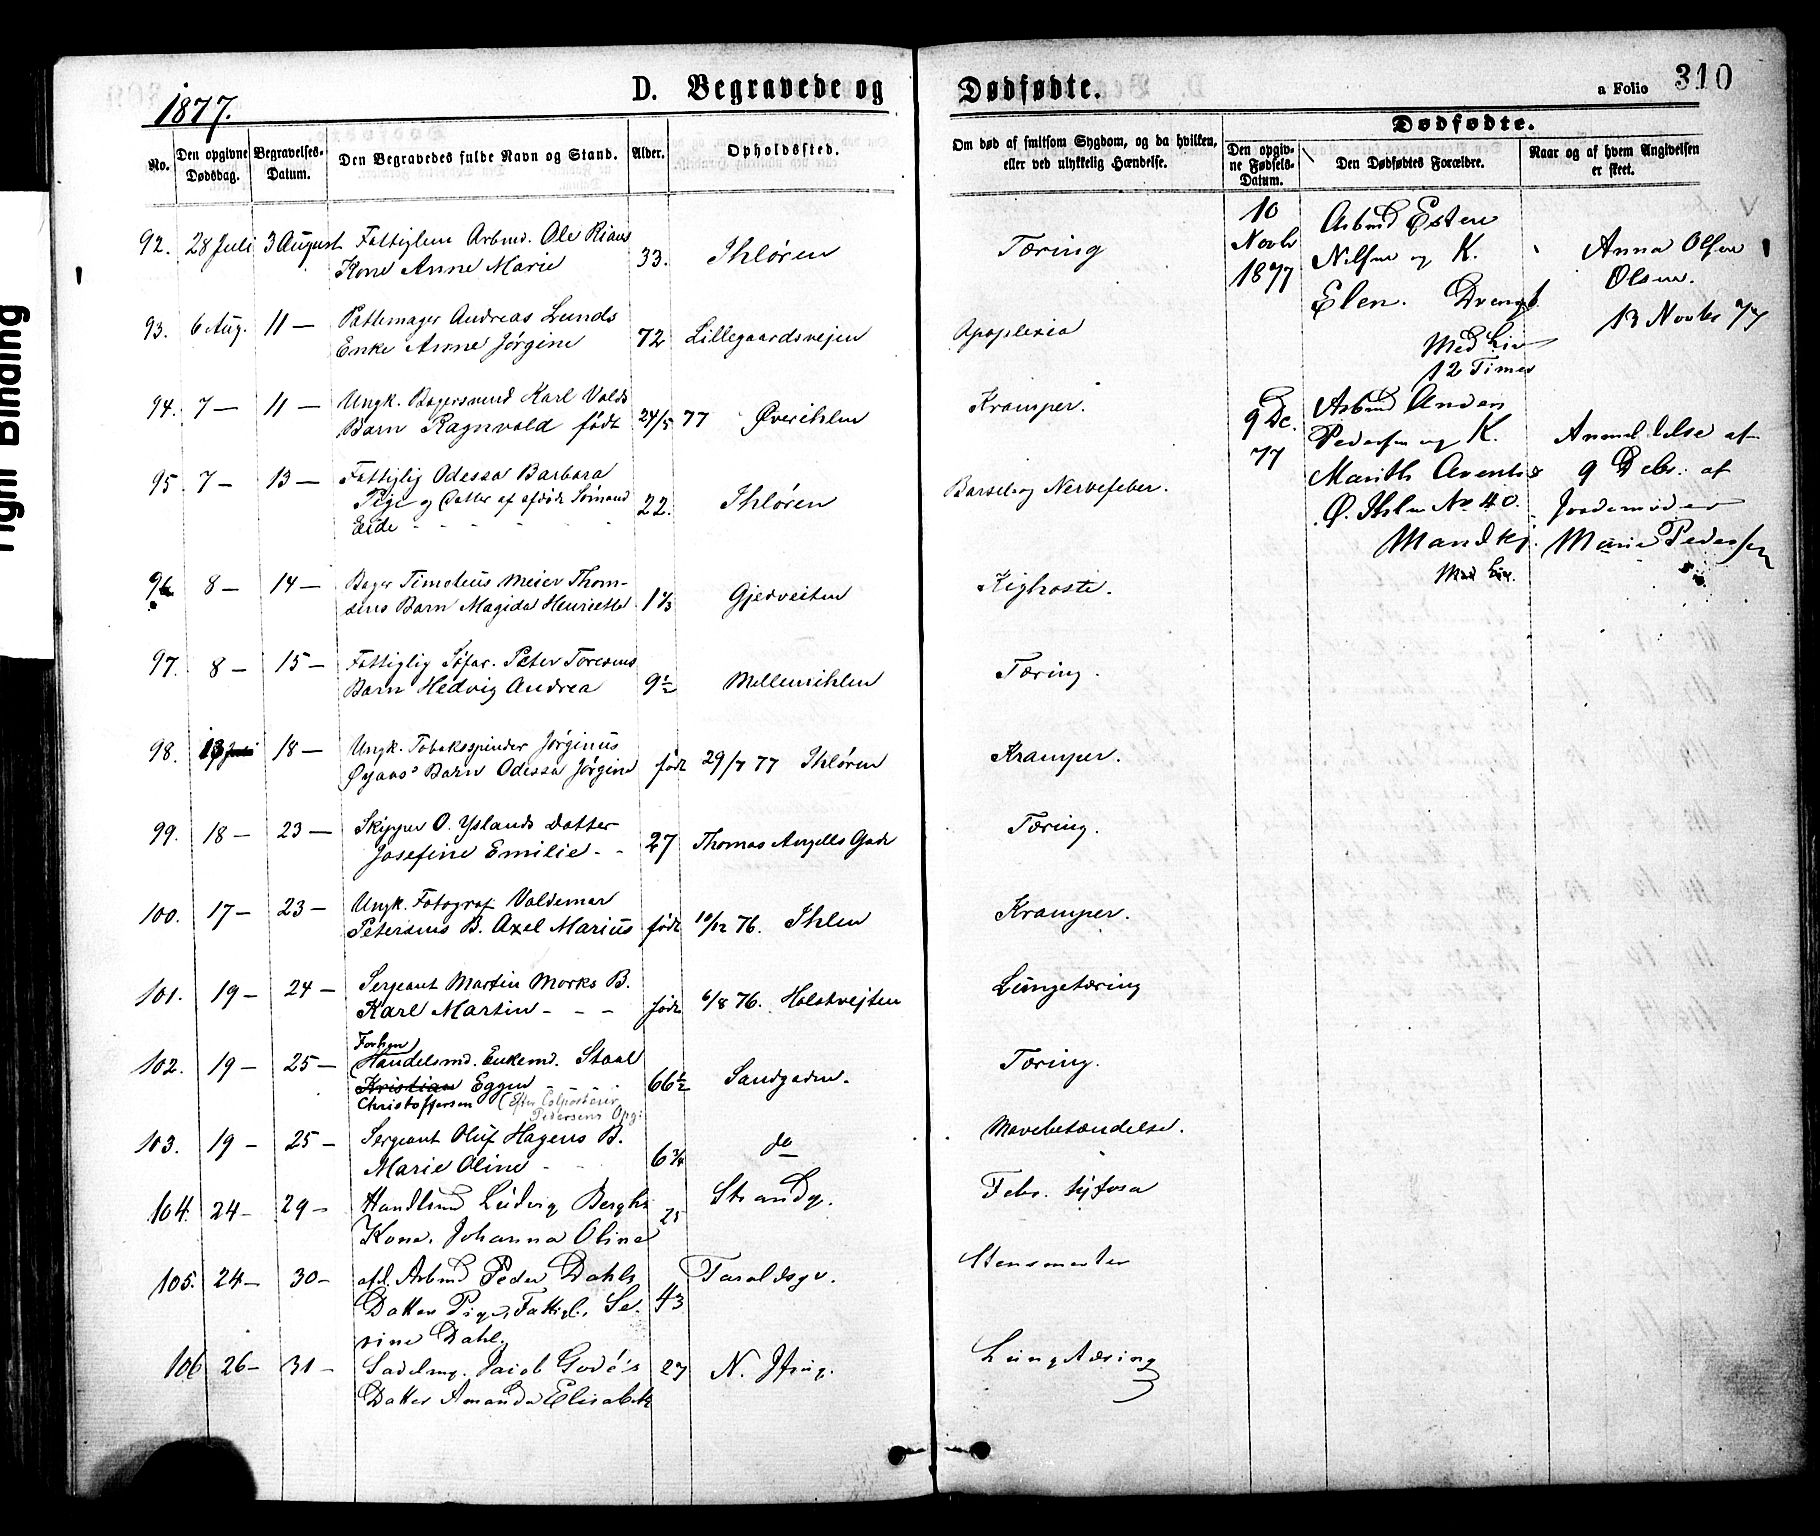 1877.
D. Begravede og Dødfødte.
a Folio 310
No.
Den opgivne Dødsdag.
Begravelses-Datum.
Den Begravedes fulde Navn og Stand.
Alder.
Opholdssted.
Om død af smitsom Sygdom, og da hvilken, eller ved ulykkelig Hændelse.
Dødfødte.
Den opgivne Fødsels-Datum.
Den Dødfødtes Forældre.
Naar og af hvem Angivelsen er skeet.
92. 28 Juli 3 August Fattiglem Arbmd. Ole Rians
Kone Anne Marie 33. Ihløren Tæring
93. 6 Aug. 11 — Pottemager Andreas Lunds
Enke Anne Jørgine 72 Lillegaardsvejen Apoplexia
94. 7 — 11 — Ungk. Bagersvend Karl Volds
Barn Ragnvald født 24/5 77 Øverihlen Kramper.
95 7 — 13 — Fattiglig Odessa Barbara
Pige og Datter af afdøde Sømand
Eide - - - - 22. Ihløren Barsel og Nervefeber.
96 8 — 14 — Bager Timoteus Meier Thom-
sens Barn Magida Henriette 1 1/3 Gjedveiten Kighoste.
97. 8 — 15 — Fattiglig Søfar. Peter Toresens
Barn Hedvig Andrea 9½ Mellemihlen Tæring.
98. 13 18 — Ungk. Tobaksspinder Jørginus
Øyaas' Barn Odessa Jørgine født 29/7 77 Ihløren Kramper.
99. 18 — 23 — Skipper O. Yslands Datter
Josefine Emilie - - 27 Thomas Angells Gade Tæring.
100. 17 — 23 — Ungk. Fotograf Valdemar
Petersens B. Axel Marius født 10/12 76. Ihlen Kramper.
101. 19 — 24 — Sergeant Martin Morks B.
Karl Martin - - - født 6/8 76. Holstvejten Lungetæring
102. 19 — 25 — Forhen
Handelsmd. Enkemd. Staal
Kristian Eggen - - - 66½ Sandgaden. Tæring.
Christoffersen (Efter Colportører
Pedersens Opg:
103. 19 — 25 — Sergeant Oluf Hagens B.
Marie Oline - 6 3/4 do Mavebetændelse.
104. 24 — 29 — Handlsmd Ludvig Berghs
Kone, Johanna Olina 25 Strandg. Febr. tyfosa
105. 24 — 30 — afd. Arbmd Peder Dahls
Datter Pige, Fattigl. Se-
rine Dahl 43 Taraldsgv. Stensmerter
106 26 — 31 — Sadelmg. Jacob Godè's 27 N. Lungetæring
Datter Amanda Elisabeth
10 Novbr 1877
Arbmd Esten
Nilsen og K.
Elen. Drengb.
Med Liv
12 Timer
Anna Olsen
Olsen.
13 Novbr 77
9 Dc. 77
Arbmd Anders
Pedersen og K.
Marith Arentsd
Ø. Ihlen No 40.
Mandkj.
Med Liv.
Anmeldelse af
9 Debr. af
Jordemoder
Marie Pedersen
Tight Binding